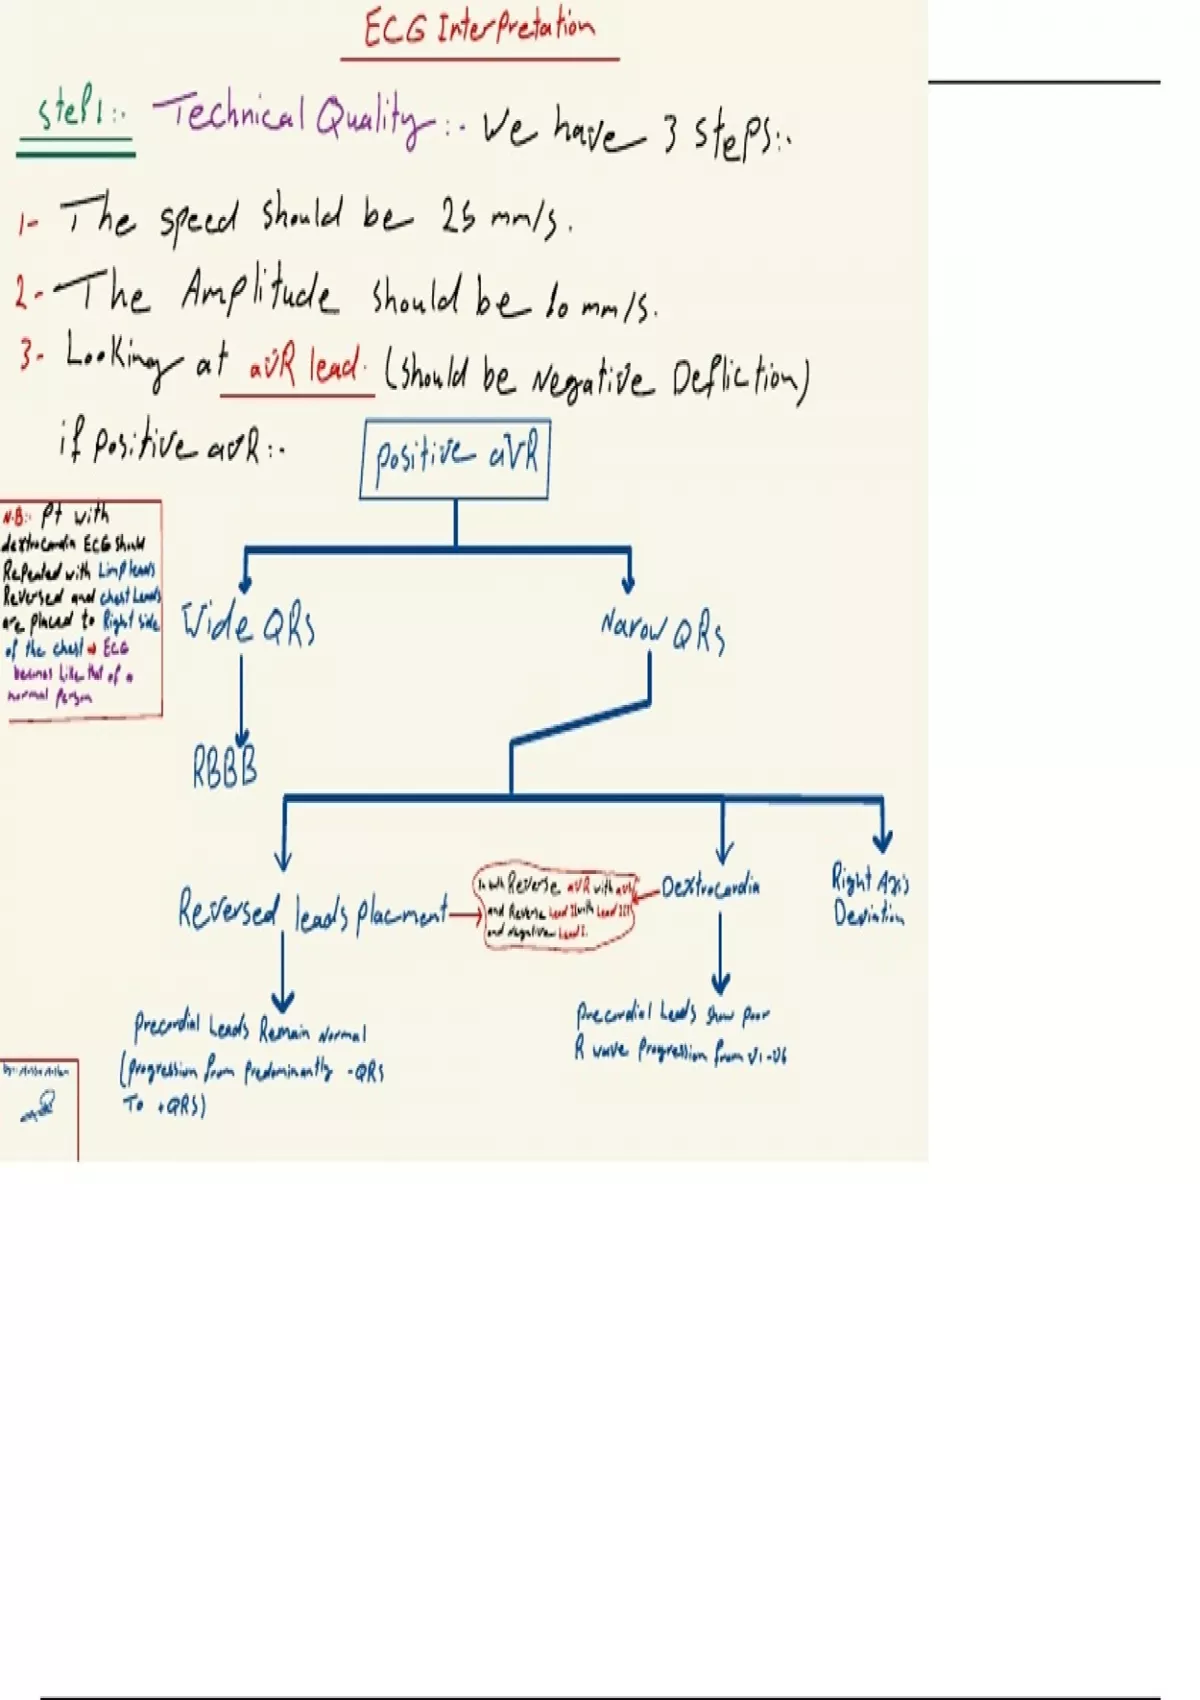 ECG Interpretation
Step 1:- Technical Quality:- We have 3 steps:-
1- The speed should be 25 mm/s.
2- The Amplitude should be 10 mm/s.
3- Looking at aVR lead. (should be Negative Defliction)
if positive aVR:-
positive aVR
N.B:- Pt with
dextrocardia ECG should
Repeated with Limp leads
Reversed and chest Leads
are placed to Right side
of the chest → ECG
becomes like that of a
normal person
Wide QRS
Narow QRS
RBBB
Reversed leads placment
In both Reverse aVR with aVL
and Reverse Lead II with Lead III
and negative Lead I.
Dextrocardia
Right Axis
Deviation
Precordial Leads Remain Normal
(progression from predominantly -QRS
To +QRS)
Precordial Leads show poor
R wave progression from V1-V6
by:-